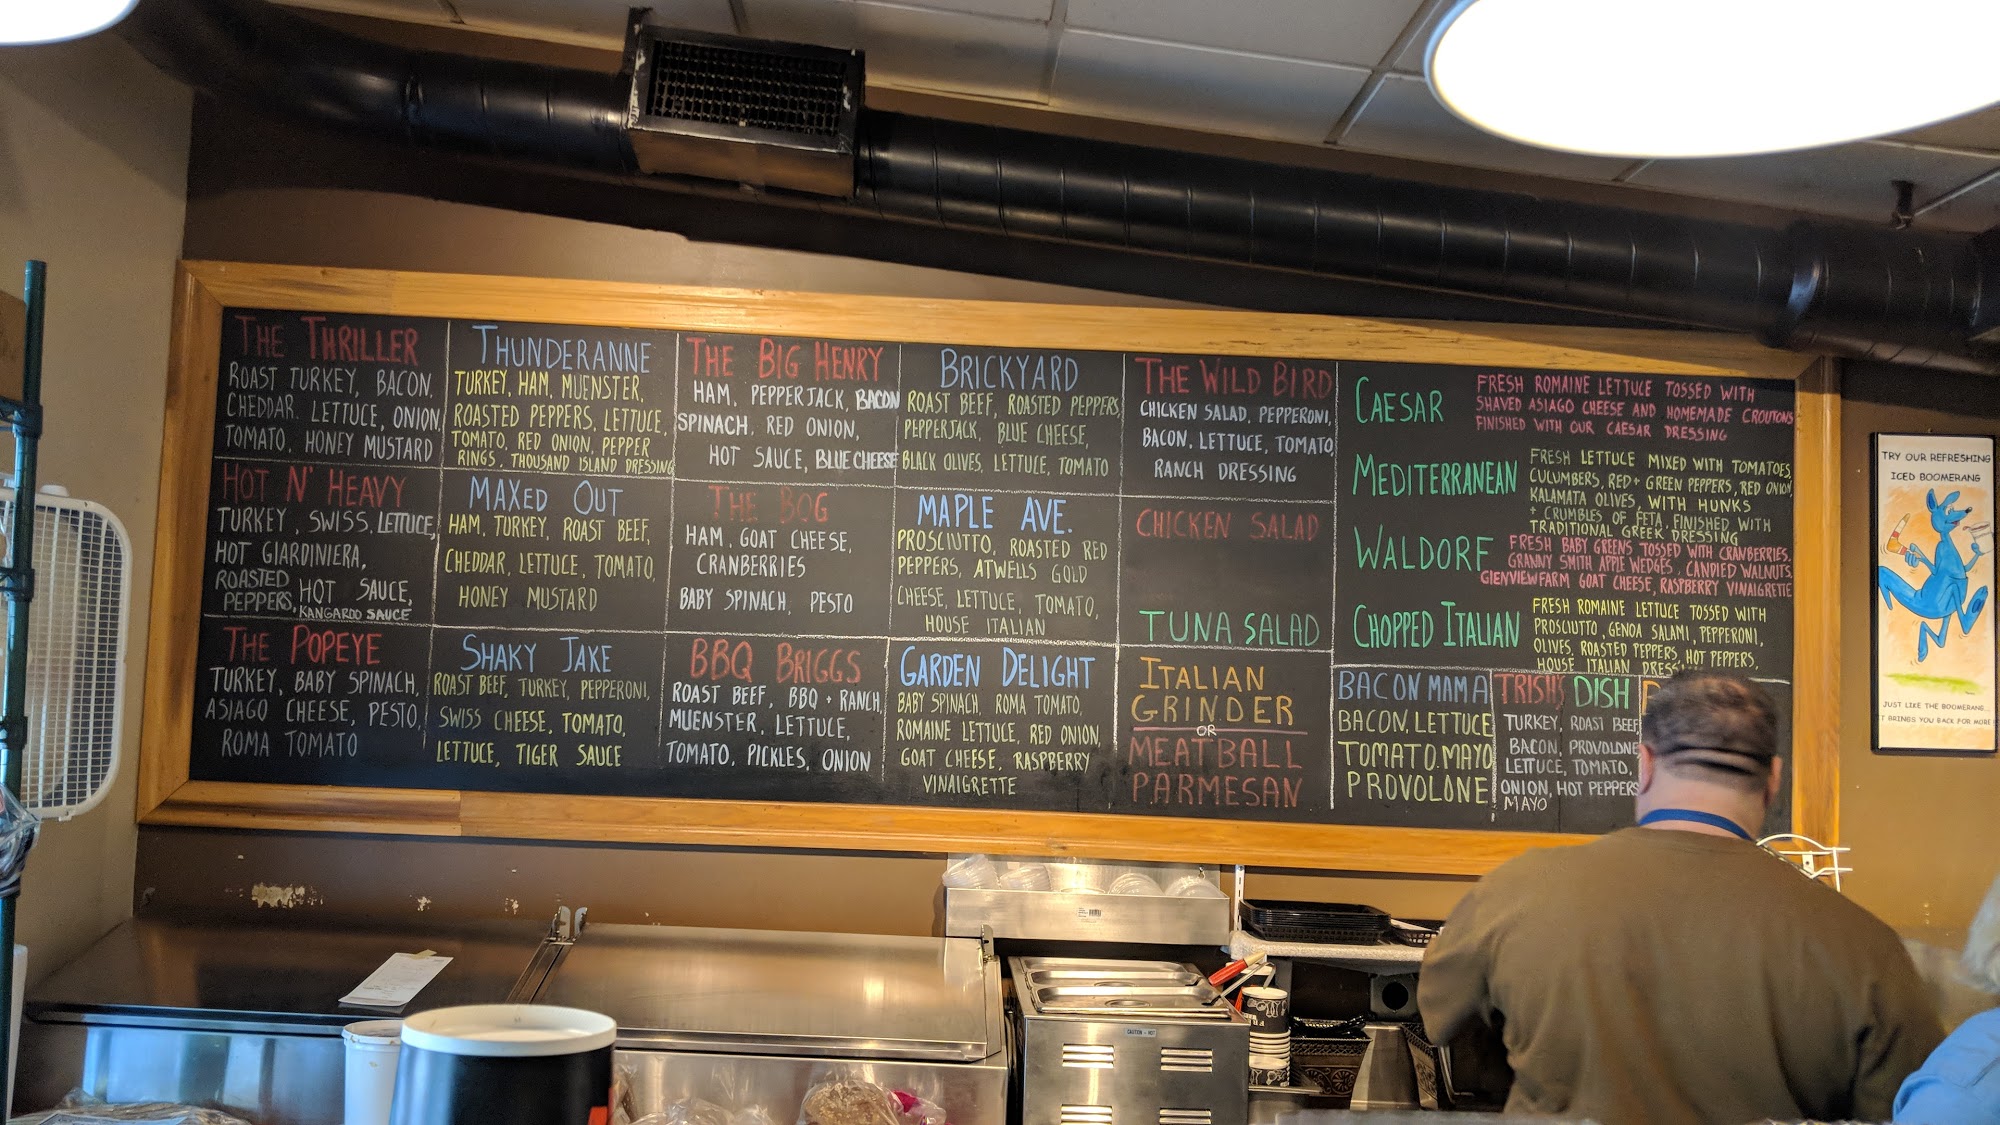 THE THRILLER
ROAST TURKEY, BACON,
CHEDDAR, LETTUCE, ONION,
TOMATO, HONEY MUSTARD
THUNDERANNE
TURKEY, HAM, MUENSTER,
ROASTED PEPPERS, LETTUCE,
TOMATO, RED ONION, PEPPER
RINGS, THOUSAND ISLAND DRESSING
THE BIG HENRY
HAM, PEPPERJACK, BACON
SPINACH, RED ONION,
HOT SAUCE, BLUE CHEESE
BRICKYARD
ROAST BEEF, ROASTED PEPPERS,
PEPPERJACK, BLUE CHEESE,
BLACK OLIVES, LETTUCE, TOMATO
THE WILD BIRD
CHICKEN SALAD, PEPPERONI,
BACON, LETTUCE, TOMATO,
RANCH DRESSING
HOT N' HEAVY
TURKEY, SWISS, LETTUCE,
HOT GIARDINIERA,
ROASTED PEPPERS, HOT SAUCE,
KANGAROO SAUCE
MAXED OUT
HAM, TURKEY, ROAST BEEF,
CHEDDAR, LETTUCE, TOMATO,
HONEY MUSTARD
THE BOG
HAM, GOAT CHEESE,
CRANBERRIES
BABY SPINACH, PESTO
MAPLE AVE.
PROSCIUTTO, ROASTED RED
PEPPERS, ATWELLS GOLD
CHEESE, LETTUCE, TOMATO,
HOUSE ITALIAN
CHICKEN SALAD
TUNA SALAD
THE POPEYE
TURKEY, BABY SPINACH,
ASIAGO CHEESE, PESTO,
ROMA TOMATO
SHAKY JAKE
ROAST BEEF, TURKEY, PEPPERONI,
SWISS CHEESE, TOMATO,
LETTUCE, TIGER SAUCE
BBQ BRIGGS
ROAST BEEF, BBQ + RANCH,
MUENSTER, LETTUCE,
TOMATO, PICKLES, ONION
GARDEN DELIGHT
BABY SPINACH, ROMA TOMATO,
ROMAINE LETTUCE, RED ONION,
GOAT CHEESE, RASPBERRY
VINAIGRETTE
ITALIAN
GRINDER
OR
MEATBALL
PARMESAN
CAESAR
FRESH ROMAINE LETTUCE TOSSED WITH
SHAVED ASIAGO CHEESE AND HOMEMADE CROUTONS
FINISHED WITH OUR CAESAR DRESSING
MEDITERRANEAN
FRESH LETTUCE MIXED WITH TOMATOES,
CUCUMBERS, RED + GREEN PEPPERS, RED ONION,
KALAMATA OLIVES, WITH HUNKS
+ CRUMBLES OF FETA, FINISHED WITH
TRADITIONAL GREEK DRESSING
WALDORF
FRESH BABY GREENS TOSSED WITH CRANBERRIES,
GRANNY SMITH APPLE WEDGES, CANDIED WALNUTS,
GLENVIEW FARM GOAT CHEESE, RASPBERRY VINAIGRETTE
CHOPPED ITALIAN
FRESH ROMAINE LETTUCE TOSSED WITH
PROSCIUTTO, GENOA SALAMI, PEPPERONI,
OLIVES, ROASTED PEPPERS, HOT PEPPERS,
HOUSE ITALIAN
BACON MAMA
BACON, LETTUCE
TOMATO, MAYO
PROVOLONE
TRISH'S DISH
TURKEY, ROAST BEEF,
BACON, PROVOLONE
LETTUCE, TOMATO,
ONION, HOT PEPPERS
MAYO
TRY OUR REFRESHING
ICED BOOMERANG
JUST LIKE THE BOOMERANG...
IT BRINGS YOU BACK FOR MORE!
CAUTION - HOT